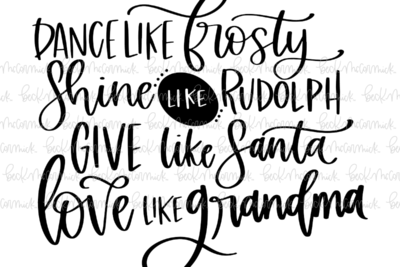 DANCE LIKE frosty
Shine LIKE RUDOLPH
GIVE like Santa
love LIKE grandma